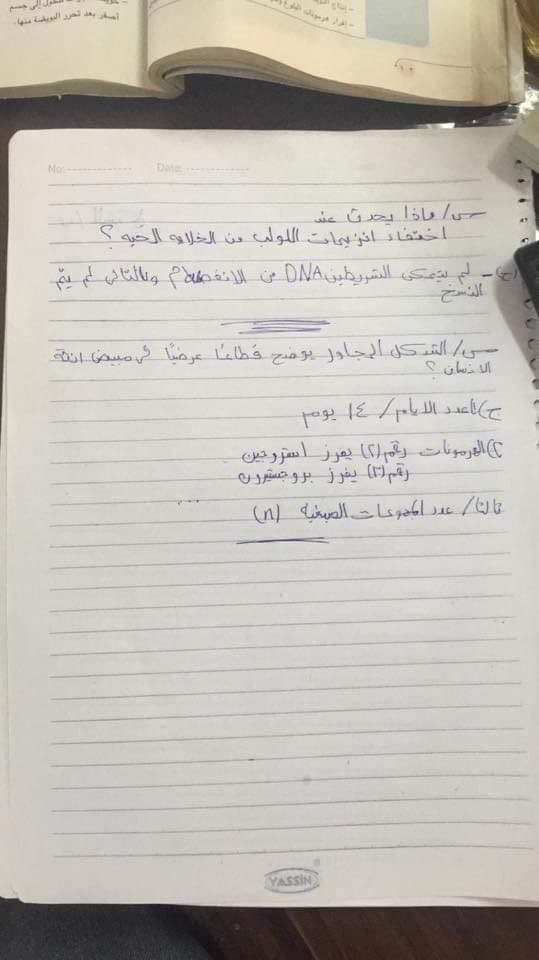 - إنتاج
- إفراز هرمونات البلوغ
إلى جسم
أصفر بعد تحرر البويضة منها.
١٠٢
No:
Date:
س/ ماذا يحدث عند
اختفاء انزيمات اللولب من الخلايا الحية؟
ج) - لم يتمكن الشريطين DNA من الانفصال وبالتالي لم يتم
النسخ
س/ الشكل المجاور يوضح قطاعًا عرضيًا في مبيض انثى
الانسان؟
ج) ١عدد الايام/ ١٤ يوم
٢) الهرمونات رقم (٢) يفرز استروجين
رقم (٣) يفرز بروجستيرون
ثالثا/ عدد المجموعات الصبغية (n)
YASSIN